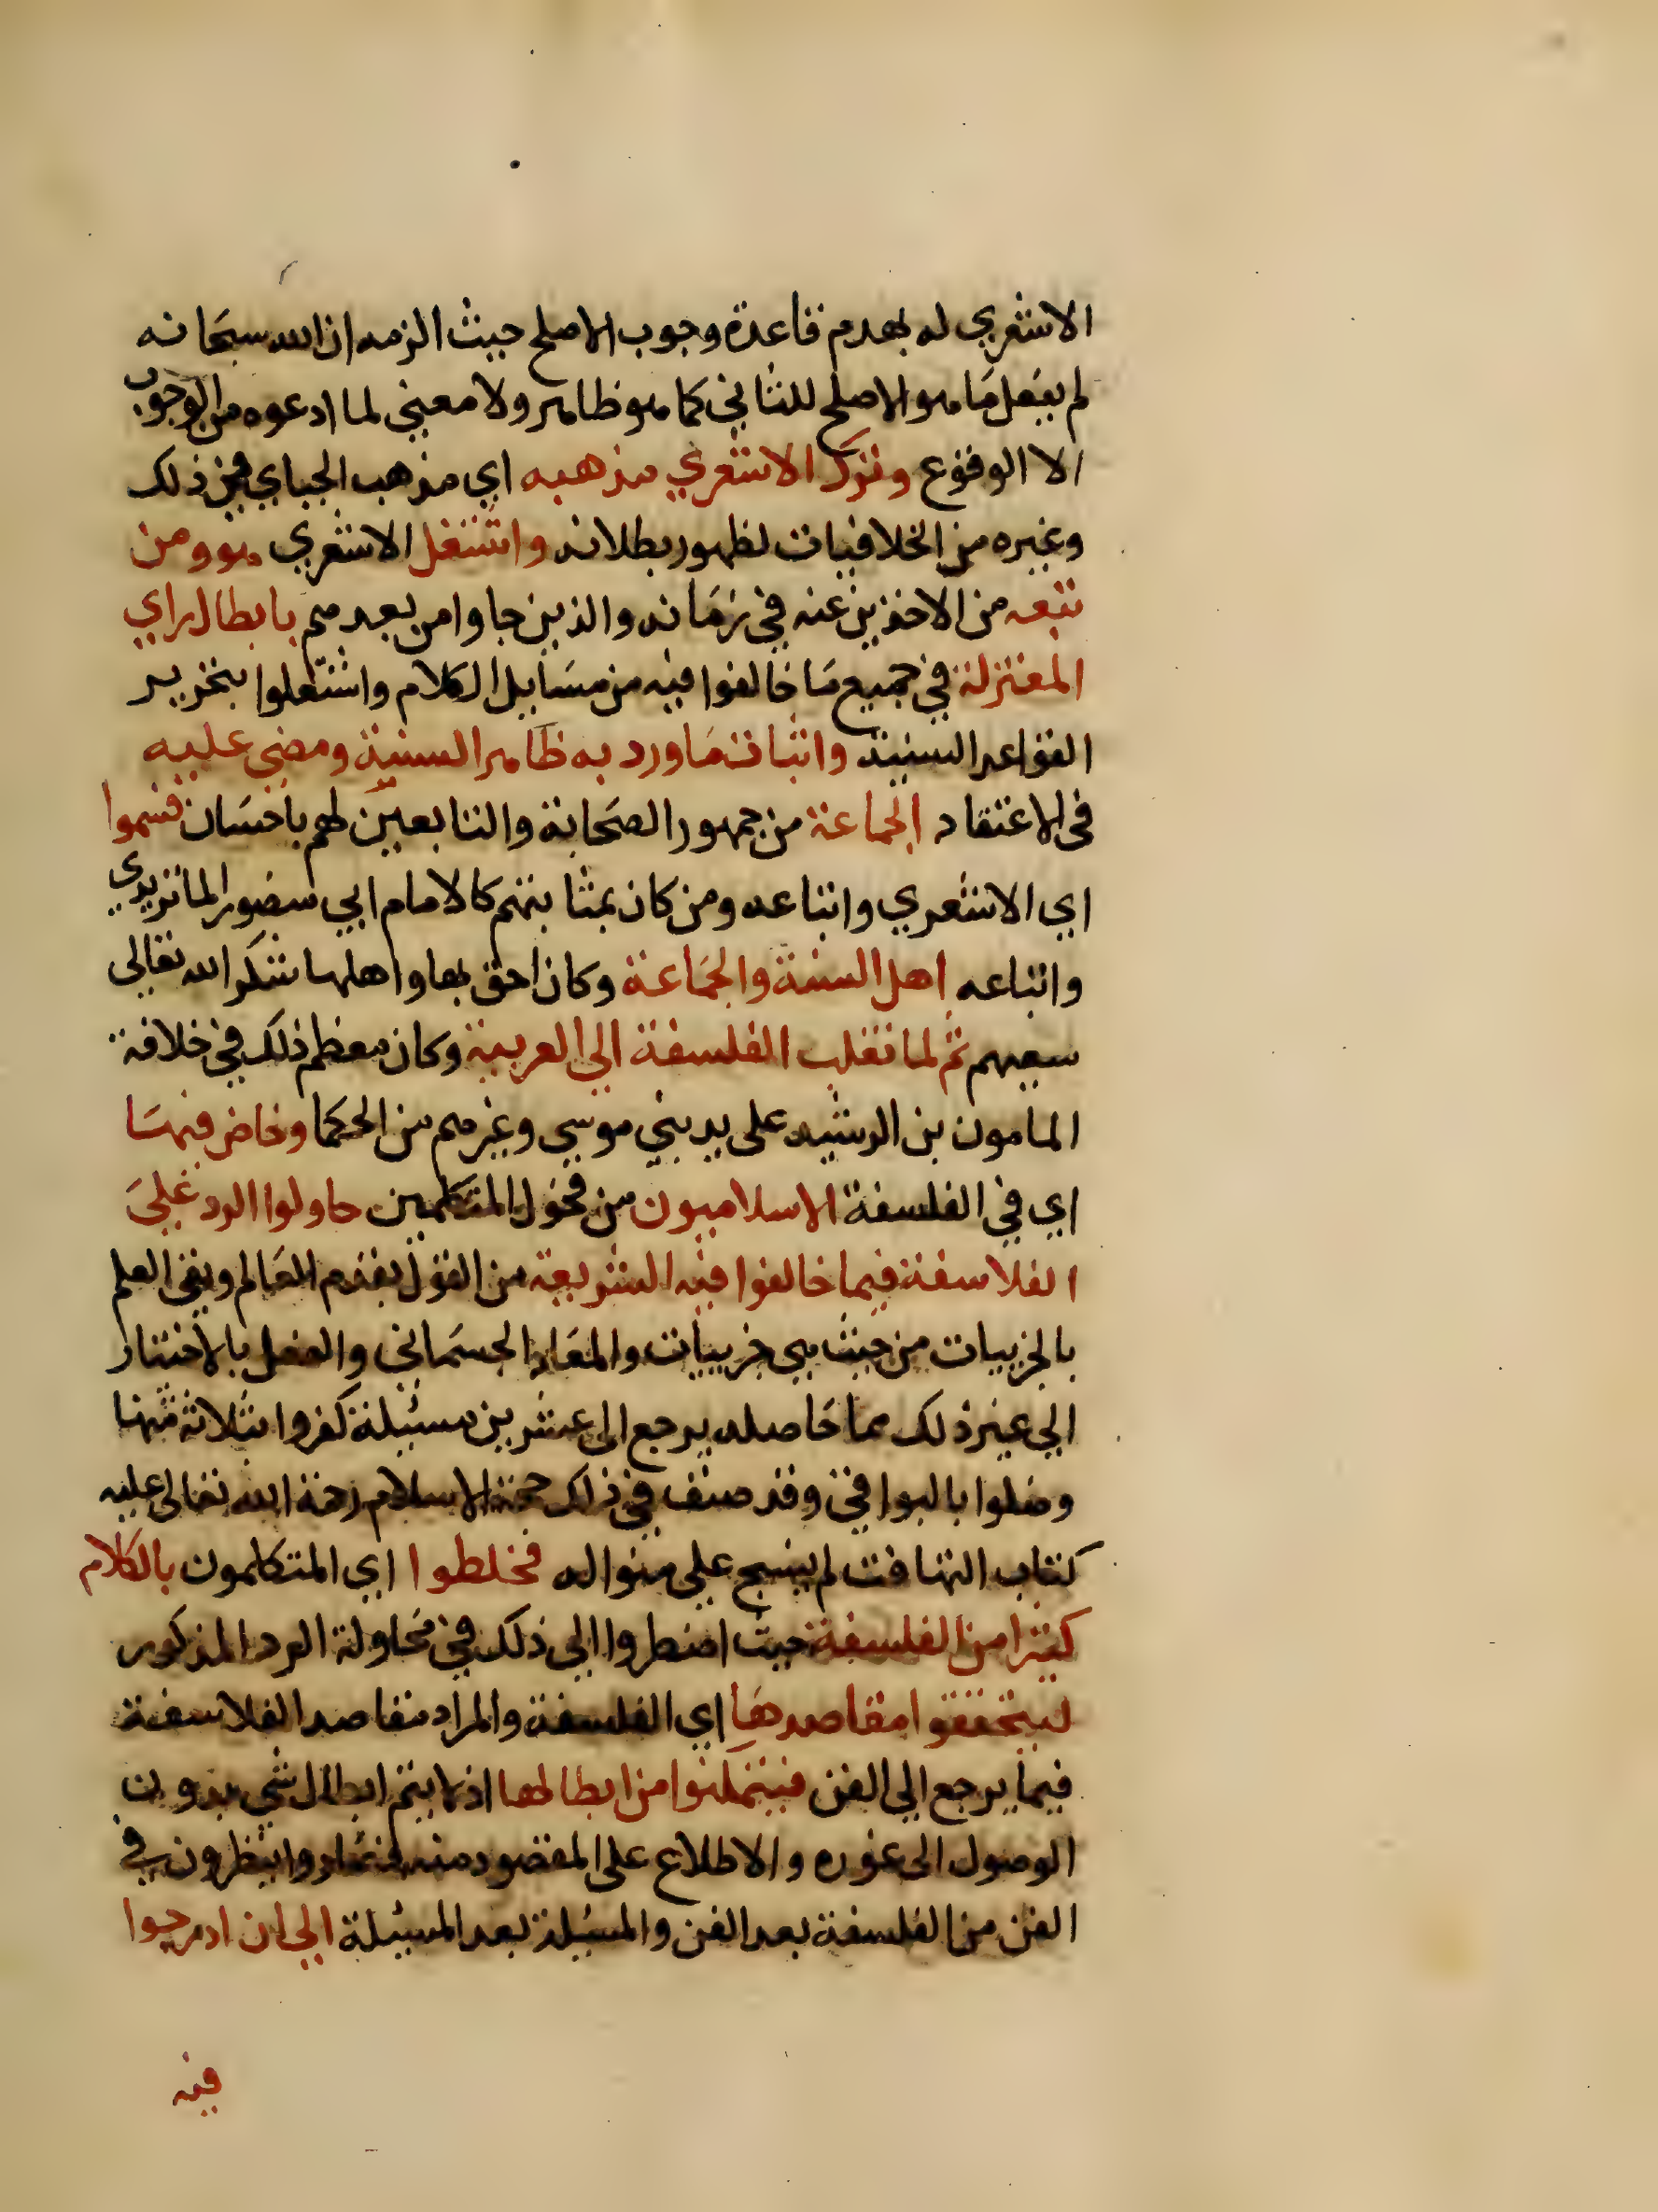 الاشعري له بهدم قاعدة وجوب الاصلح حيث الزمه ان الله سبحانه
لم يفعل ما هو الاصلح للثاني كما هو ظاهر ولا معني لما ادعوه من الوجوب
الا الوقوع وترك الاشعري مذهبه اي مذهب الجباي في ذلك
وغيره من الخلافيات لظهور بطلانه واشتغل الاشعري هو ومن
تبعه من الاخذين عنه في زمانه والذين جاوا من بعدهم بابطال راي
المعتزلة في جميع ما خالفوا فيه من مسايل الكلام واشتغلوا بتحرير
القواعد السنية واثبات ما ورد به ظاهر السنة ومضي عليه
في الاعتقاد الجماعة من جمهور الصحابة والتابعين لهم باحسان فسموا
اي الاشعري واتباعه ومن كان بمثابتهم كالامام ابي منصور الماتريدي
واتباعه اهل السنة والجماعة وكان احق بها واهلها شكر الله تعالي
سعيهم ثم لما نقلت الفلسفة الي العربية وكان معظم ذلك في خلافة
المامون بن الرشيد علي يد بني موسي وغيرهم من الحكما وخاض فيها
اي في الفلسفة الاسلاميون من فحول المتكلمين حاولوا الرد علي
الفلاسفة فيما خالفوا فيه الشريعة من القول بقدم العالم ونفي العلم
بالجزييات من حيث هي جزييات والمعاد الجسماني والفعل بالاختيار
الي غير ذلك مما حاصله يرجع الي عشرين مسئلة كفروا بثلاثة منها
وضلوا بالبواقي وقد صنف في ذلك حجة الاسلام رحمة الله تعالي عليه
كتاب التهافت لم ينسج علي منواله فخلطوا اي المتكلمون بالكلام
كثيرا من الفلسفة حيث اضطروا الي ذلك في محاولة الرد المذكور
ليتحققوا مقاصدها اي الفلسفة والمراد مقاصد الفلاسفة
فيما يرجع الي الفن فيتمكنوا من ابطالها اذ لا يتم ابطال شي بدون
الوصول الي غوره والاطلاع علي المقصود منه فتمادوا ينظرون في
الفن من الفلسفة بعد الفن والمسئلة بعد المسئلة الي ان ادرجوا
فيه